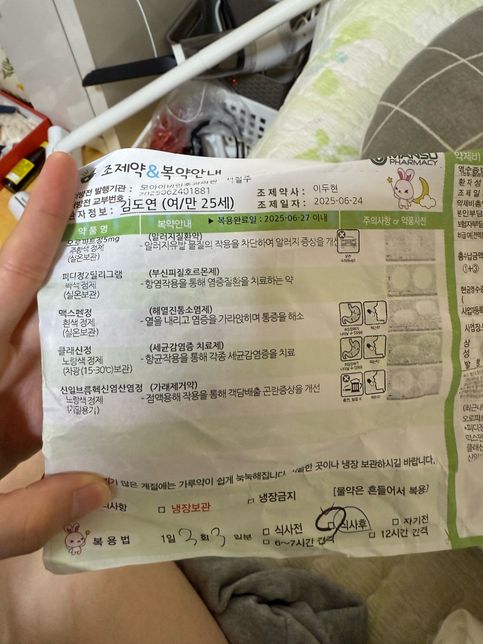 조제약&복약안내
MANSU PHARMACY
처방전 발행기관 :
처방전 교부번호 : 2025062401881
조제약사 : 이두현
환자정보 : 김도연 (여/만 25세)
조제일자 : 2025-06-24
약품명 복약안내 ▶ 복용완료일 : 2025-06-27 이내 주의사항 or 약품사진
(알러지질환약)
- 알러지유발 물질의 작용을 차단하여 알러지 증상을 개선
주황색 정제
(실온보관)
피디정2밀리그램 (부신피질호르몬제)
백색 정제 - 항염작용을 통해 염증질환을 치료하는 약
(실온보관)
맥스펜정 (해열진통소염제)
흰색 정제 - 열을 내리고 염증을 가라앉히며 통증을 해소
(실온보관)
클래신정 (세균감염증 치료제)
노랑색 정제 - 항균작용을 통해 각종 세균감염증을 치료
(차광(15-30℃)보관)
신일브롬헥신염산염정 (가래제거약)
노랑색 정제 - 점액용해 작용을 통해 객담배출 곤란증상을 개선
(기밀용기)
많은 계절에는 가루약이 쉽게 눅눅해집니다. 곳이나 냉장 보관하시길 바랍니다.
의사항 □ 냉장보관 □ 냉장금지 [물약은 흔들어서 복용]
복용법 1일 3회 3일분 □ 식사전 □ 식사후 □ 자기전
□ 6~7시간 간격 □ 12시간 간격
약제비